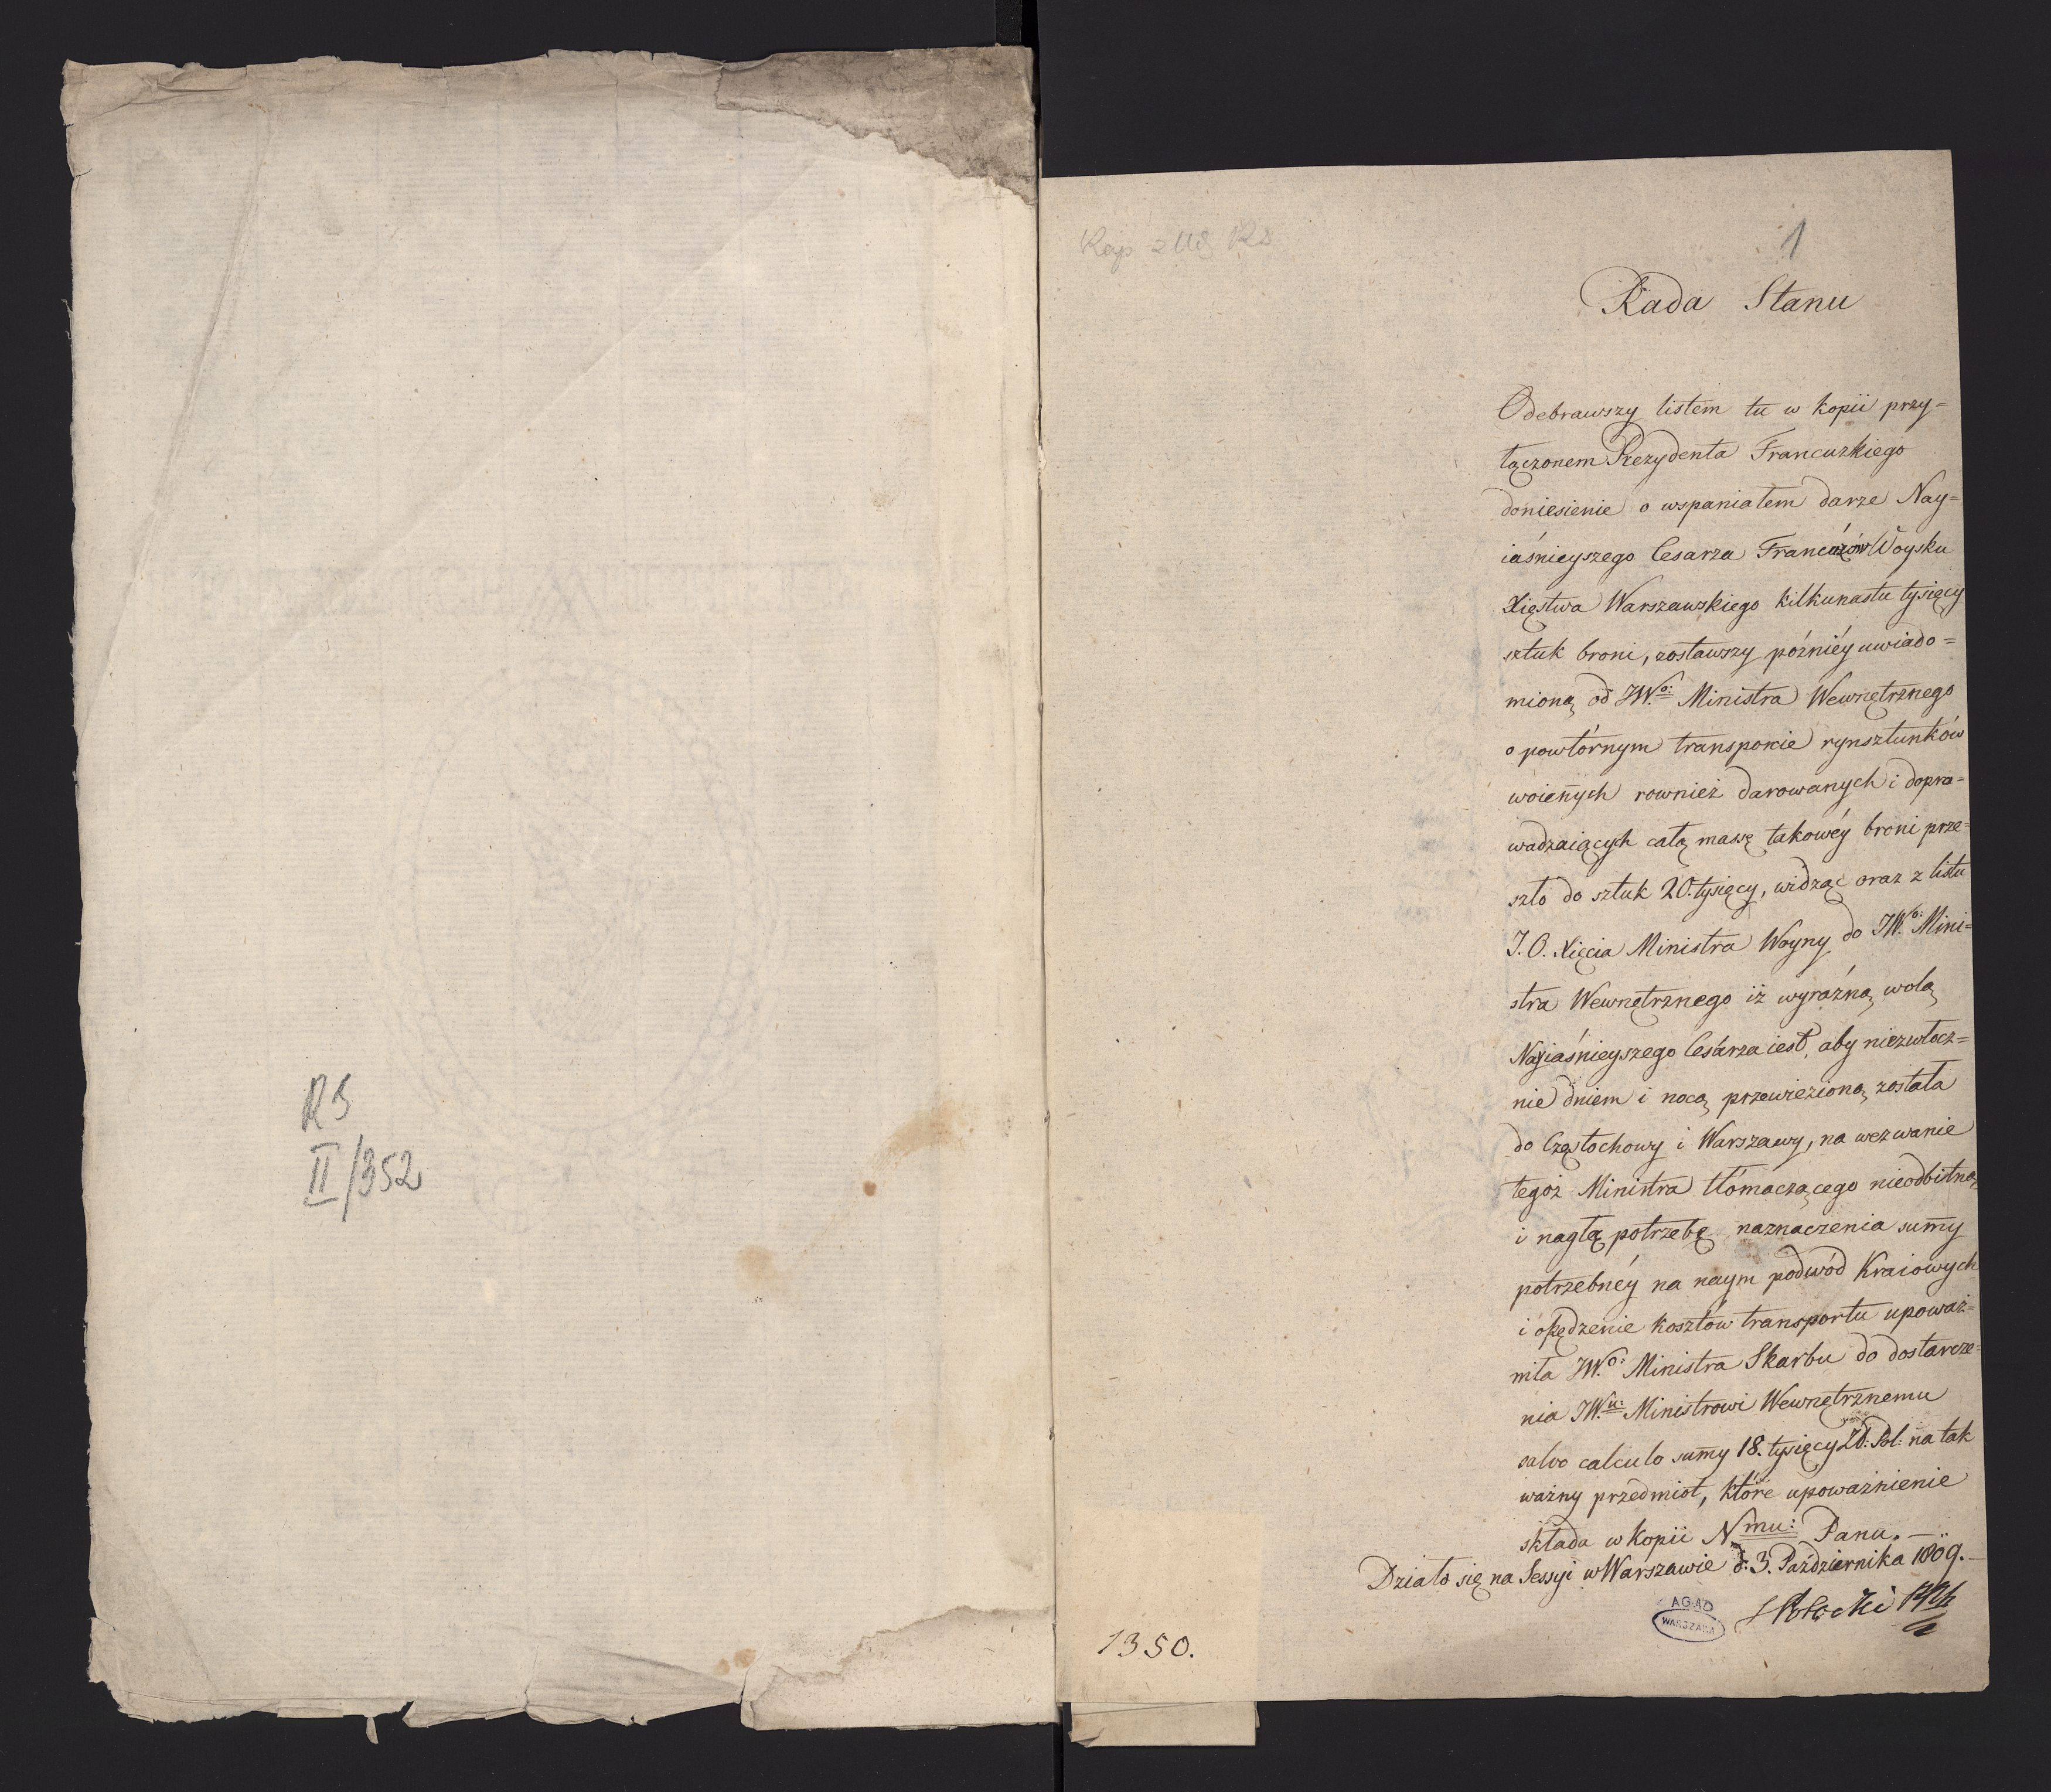 RS
II/352
1
Rada Stanu
Odebrawszy listem tu w kopii przy=
łączonem Rezydenta Francuzkiego
doniesienie o wspaniałem darze Nay=
iaśnieyszego Cesarza Francuzów Woysku
Xięstwa Warszawskiego kilkunastu tysięcy
sztuk broni, zostawszy późniéy uwiado=
mioną od JW.o: Ministra Wewnętrznego
o powtórnym transporcie rynsztunków
woien̄ych rownież darowanych i dopro=
wadzaiących całą massę takowéy broni prze=
szło do sztuk 20. tysięcy, widząc oraz z listu
J.O. Xięcia Ministra Woyny do JW.o: Mini=
stra Wewnętrznego iż wyraźną wolą
Nayiaśnieyszego Cesarza iest, aby niezwłocz=
nie dniem i nocą przewiezioną została
do Częstochowy i Warszawy, na wezwanie
tegoż Ministra tłómaczącego nieodbitną
i nagłą potrzebę naznaczenia sum̄y
potrzebnéy na naym podwód Kraiowych
i opędzenie kosztów transportu upoważ=
niła JW.o: Ministra Skarbu do dostarcze=
nia JW.u: Ministrowi Wewnętrznemu
salvo calculo sum̄y 18. tysięcy Zł: Pol: na tak
ważny przedmiot, które upoważnienie
składa w kopii Nmu: Panu. —
Działo się na Sessyi w Warszawie d: 3. Października 1809. —
S Potocki
AGAD
WARSZAWA
1350.